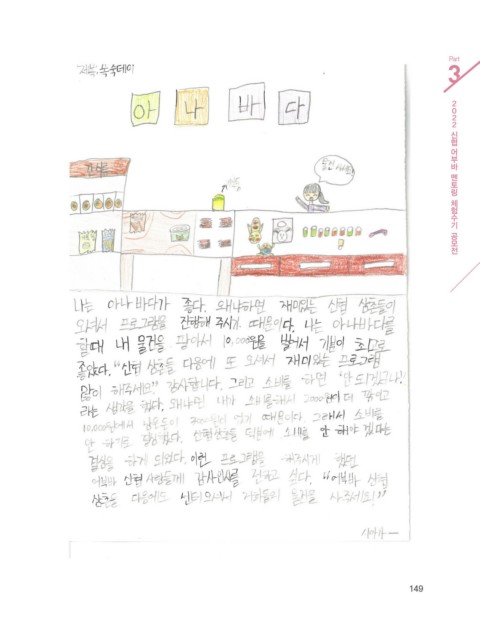 Part
3
2022 신협 어부바 멘토링 체험수기 공모전
아 나 바 다
간식
물건 사세요
나는 아나바다가 좋다. 왜냐하면 재미있는 신협 삼촌들이
오셔서 프로그램을 진행해 주시기 때문이다. 나는 아나바다를
할때 내 물건을 팔아서 10,000원을 벌어서 기분이 최고로
좋았다. "신협 삼촌들 다음에 또 오셔서 재미있는 프로그램
많이 해주세요" 감사합니다. 그리고 소비를 하면 안 되겠구나!
라는 생각을 했다. 왜냐면 내가 소비를해서 2000원이 더
10,000원에서 남은돈이 없기 때문이다. 그래서 소비를
안 하기로 신협삼촌들 덕분에 소비를 안 해야 겠다는
결심을 하게 되었다. 이런 프로그램을 해주시게 했던
어부바 신협 사람들께 감사인사를 전하고 싶다. "어부바 신협
삼촌들 다음에도 오셔서 저희들의 물건을 사주세요!"
149